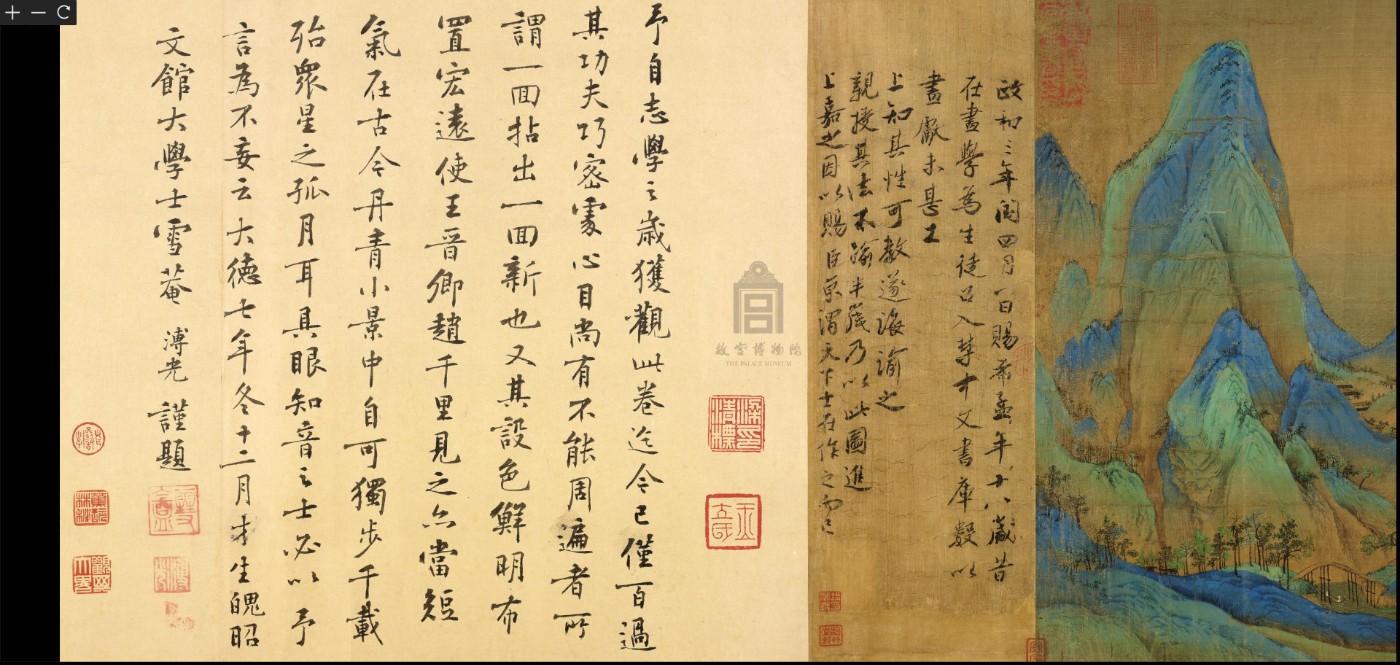 政和三年閏四月一日賜希孟年十八歲昔
在畫學為生徒召入禁中文書庫數以
畫獻未甚工
上知其性可教遂誨諭之
親授其法不踰半歲乃以此圖進
上嘉之因以賜臣京謂天下士在作之而已
予自志學之歲獲觀此卷迄今已僅百過
其功夫巧密處心目尚有不能周遍者所
謂一回拈出一回新也又其設色鮮明布
置宏遠使王晉卿趙千里見之亦當短
氣在古今丹青小景中自可獨步千載
殆眾星之孤月耳具眼知音之士必以予
言為不妄云大德七年冬十二月才生魄昭
文館大學士雪菴溥光謹題
故宮博物院
THE PALACE MUSEUM